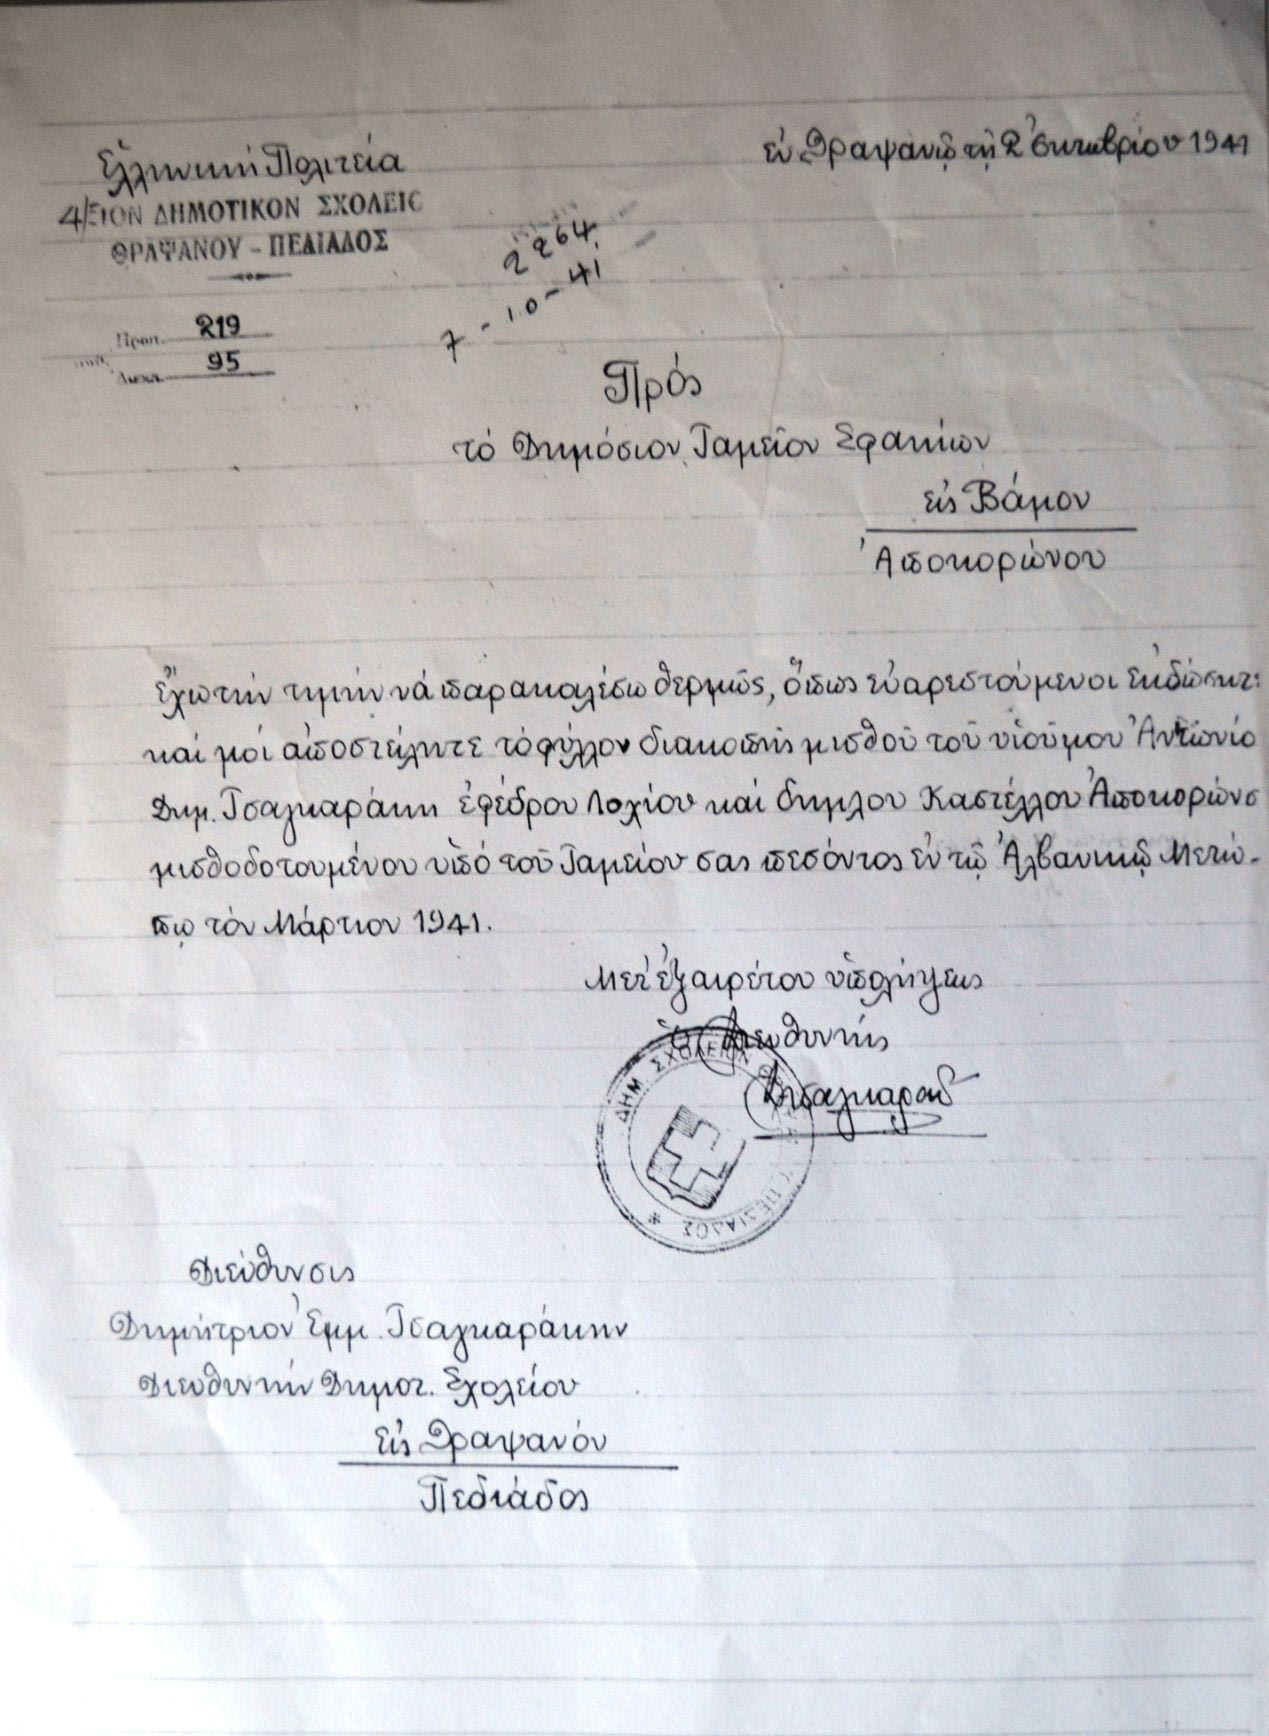 Ἑλληνική Πολιτεία
ἐν Θραψανῷ τῇ 2 Ὀκτωβρίου 1941
4/ΞΙΟΝ ΔΗΜΟΤΙΚΟΝ ΣΧΟΛΕΙΟ
ΘΡΑΨΑΝΟΥ - ΠΕΔΙΑΔΟΣ
2264
7-10-41
Πρωτ. 219
Διεκπ. 95
Πρός
τό Δημόσιον Ταμεῖον Σφακίων
εἰς Βάμον
Ἀποκορώνου
Ἔχω τήν τιμήν νά παρακαλέσω θερμῶς, ὅπως εὐαρεστούμενοι ἐκδώσητε
καί μοί ἀποστείλητε τό φύλλον διακοπῆς μισθοῦ τοῦ υἱοῦ μου Ἀντωνίο
Δημ. Τσαγκαράκη ἐφέδρου Λοχίου καί δημ/λου Καστέλλου Ἀποκορώνο
μισθοδοτουμένου ὑπό τοῦ Ταμείου σας πεσόντος ἐν τῷ Ἀλβανικῷ Μετώ-
πῳ τόν Μάρτιον 1941.
Μετ' ἐξαιρέτου ὑπολήψεως
Ὁ Διευθυντής
ΔΗΜ ΣΧΟΛΕΙΟΝ
ΠΕΔΙΑΔΟΣ *
Διεύθυνσις
Δημήτριον Ἐμμ. Τσαγκαράκην
Διευθυντήν Δημοτ. Σχολείου
Εἰς Θραψανόν
Πεδιάδος